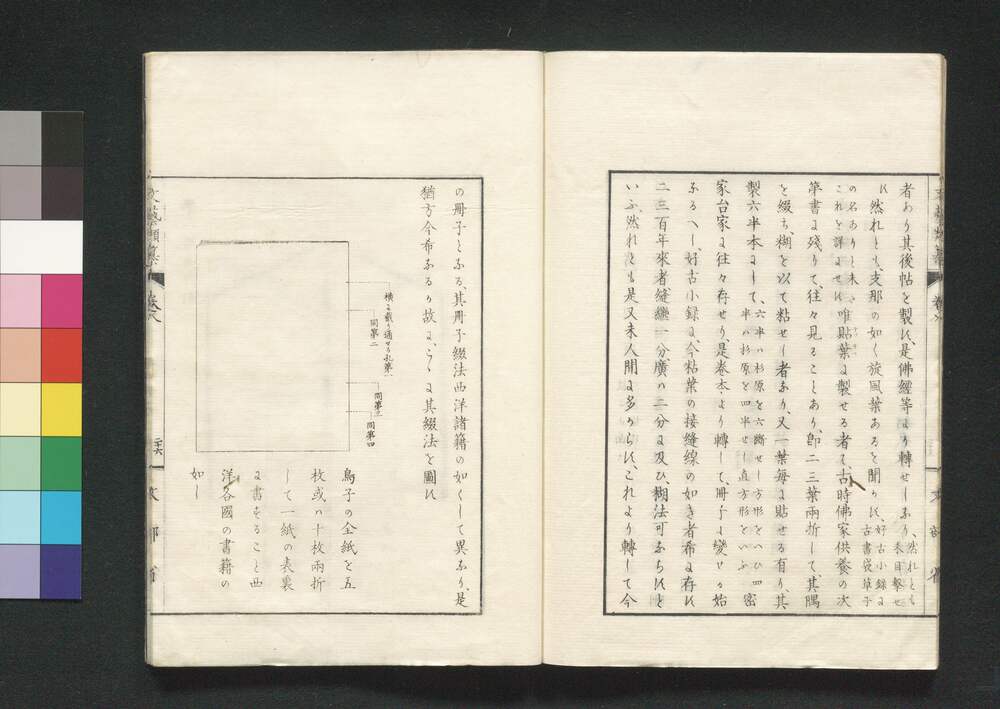 者あり其後帖を製ス是佛經等より轉せしなり、然れとも未目撃せ
ス然れとも、支那の如く旋風葉あるを聞かス、好古小録に古書袋草子
の名ありと未これを詳にせス唯貼葉に製せる者ハ、古時佛家供養の次
筆書に残りて、往々見ることあり、即二三葉兩折して、其隅
を綴ち、糊を以て粘せし者あり、又一葉毎に貼せる有り、其
製六半本にして、六半ハ杉原を六斷せし方形をいひ四半ハ杉原を四半せし直方形をいふ密
家台家に往々存せり、是巻本より轉して冊子に變せる始
なるへし、好古小録に、今粘葉の接縫線の如き者希に存ス
二三百年來者縫纔一分廣ハ二分に及ひ、糊法可ならスと
いふ、然れとも是又未人間に多からス、これより轉して今
文藝類纂
巻八
文部省
の冊子となる、其冊子綴法西洋諸籍の如くして異なり、是
猶方今希なるか故に、こゝに其綴法を圖ス
横に截り通せる孔第一
同第二
同第三
同第四
鳥子の全紙を五
枚或ハ十枚兩折
して一紙の表裏
に書することと西
洋各國の書籍の
如し
文藝類纂
巻八
二十六
文部省